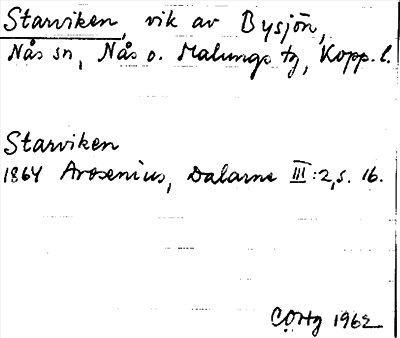 Starviken, vik av Bysjön,
Nås sn, Nås o. Malungs tg, Kopp. l.
Starviken
1864 Arosenius, Dalarne III:2, s. 16.
1962